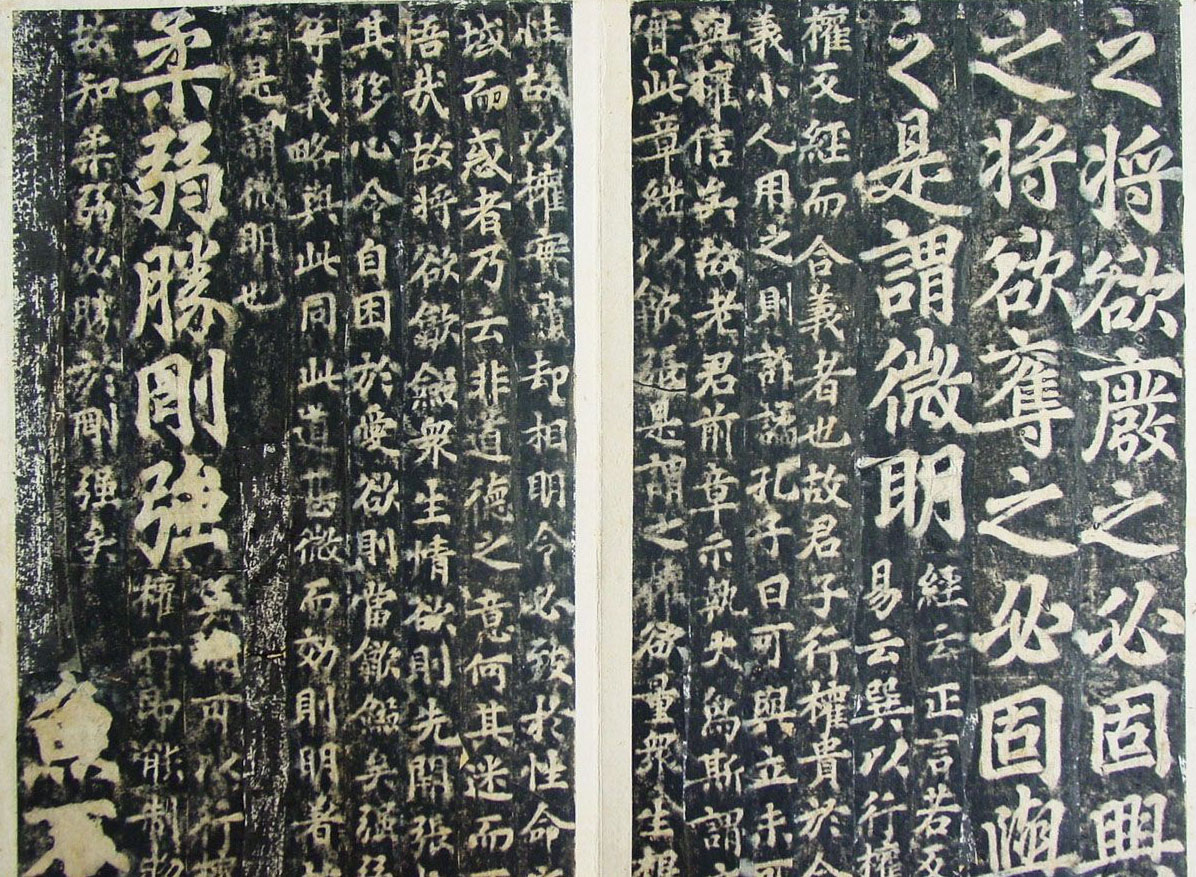 之將欲廢之必固興
之將欲奪之必固與
之是謂微明
經云正言若反
易云巽以行權
權反經而合義者也故君子行權貴於合
義小人用之則詐譎孔子曰可與立未可
與權信矣故老君前章示執大為斯謂
此章繼以歙張是謂之權欲量衆生根
性故以權實覆却相明令必致於性命
域而惑者乃云非道德之意何其迷而
悟哉故將欲歙斂衆生情欲則先開張
其侈心令自困於愛欲則當歙斂矣強
等義略與此同此道甚微而効則明者
云是謂微明也
柔弱勝剛強
可以行權
權行即能制物
故知柔弱必勝於剛强矣
魚不